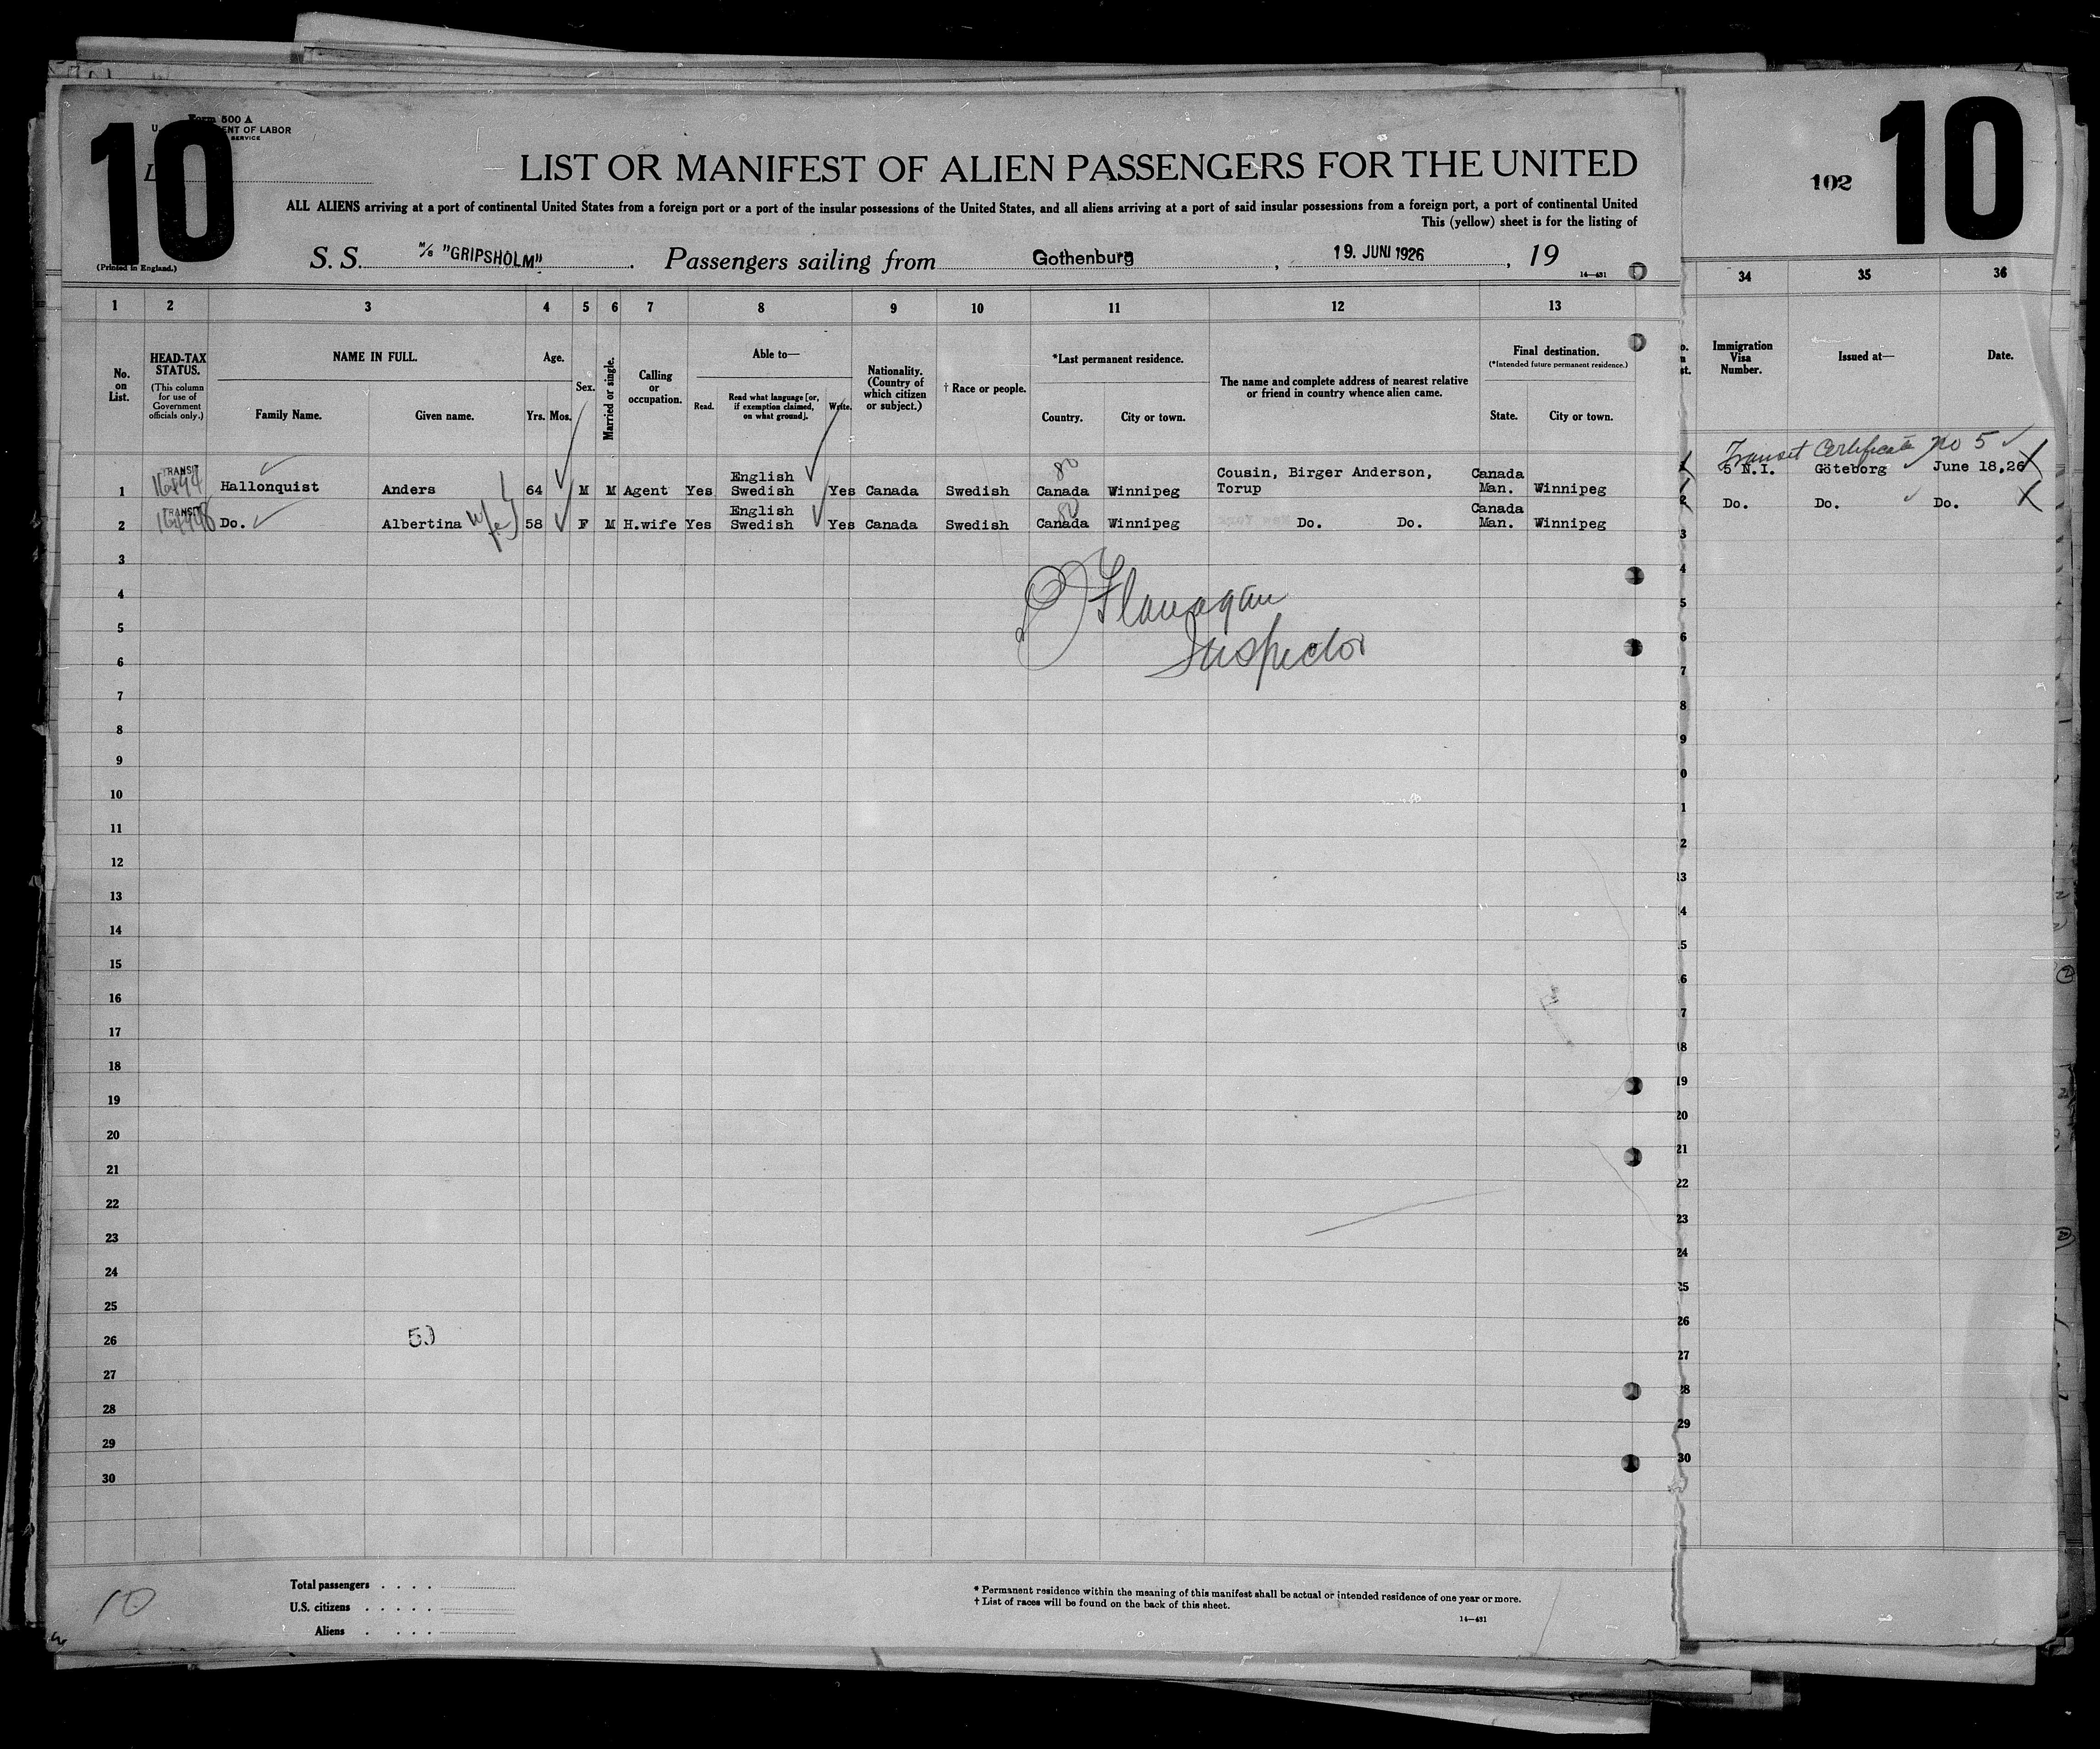 10
Form 500 A
ENT OF LABOR
SERVICE
(Printed in England.)
LIST OR MANIFEST OF ALIEN PASSENGERS FOR THE UNITED
ALL ALIENS arriving at a port of continental United States from a foreign port or a port of the insular possessions of the United States, and all aliens arriving at a port of said insular possessions from a foreign port, a port of continental United
This (yellow) sheet is for the listing of
S. S. M/S "GRIPSHOLM". Passengers sailing from Gothenburg, 19. JUNI 1926, 19
14—431
102
10
1 2 3 4 5 6 7 8 9 10 11 12 13 34 35 36
No. on List.
HEAD-TAX STATUS.
(This column for use of Government officials only.)
NAME IN FULL.
Family Name. Given name.
Age.
Yrs. Mos.
Sex.
Married or single.
Calling or occupation.
Able to—
Read. Read what language [or, if exemption claimed, on what ground]. Write.
Nationality. (Country of which citizen or subject.)
† Race or people.
*Last permanent residence.
Country. City or town.
The name and complete address of nearest relative or friend in country whence alien came.
Final destination.
(*Intended future permanent residence.)
State. City or town.
Immigration Visa Number.
Issued at—
Date.
Transit Certificate no 5
1 TRANSIT Hallonquist Anders 64 M M Agent Yes English Swedish Yes Canada Swedish Canada Winnipeg Cousin, Birger Anderson, Torup Canada Man. Winnipeg 5 N.I. Göteborg June 18,26
2 TRANSIT Do. Albertina wife 58 F M H.wife Yes English Swedish Yes Canada Swedish Canada Winnipeg Do. Do. Canada Man. Winnipeg Do. Do. Do.
Flanagan
Inspector
3
4
5
6
7
8
9
10
11
12
13
14
15
16
17
18
19
20
21
22
23
24
25
26
27
28
29
30
Total passengers . . . .
U.S. citizens . . . . .
Aliens . . . .
10
* Permanent residence within the meaning of this manifest shall be actual or intended residence of one year or more.
† List of races will be found on the back of this sheet.
14—431